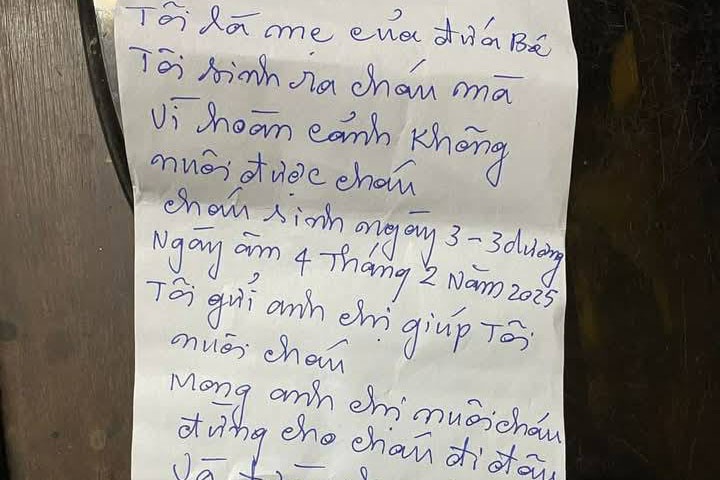 Tôi là mẹ của đứa Bé
Tôi sinh ra cháu mà
Vì hoàn cảnh không
nuôi được cháu
cháu sinh ngày 3-3 dương
Ngày âm 4 Tháng 2 Năm 2025
Tôi gửi anh chị giúp Tôi
nuôi cháu
Mong anh chị nuôi cháu
đừng cho cháu đi đâu
Và